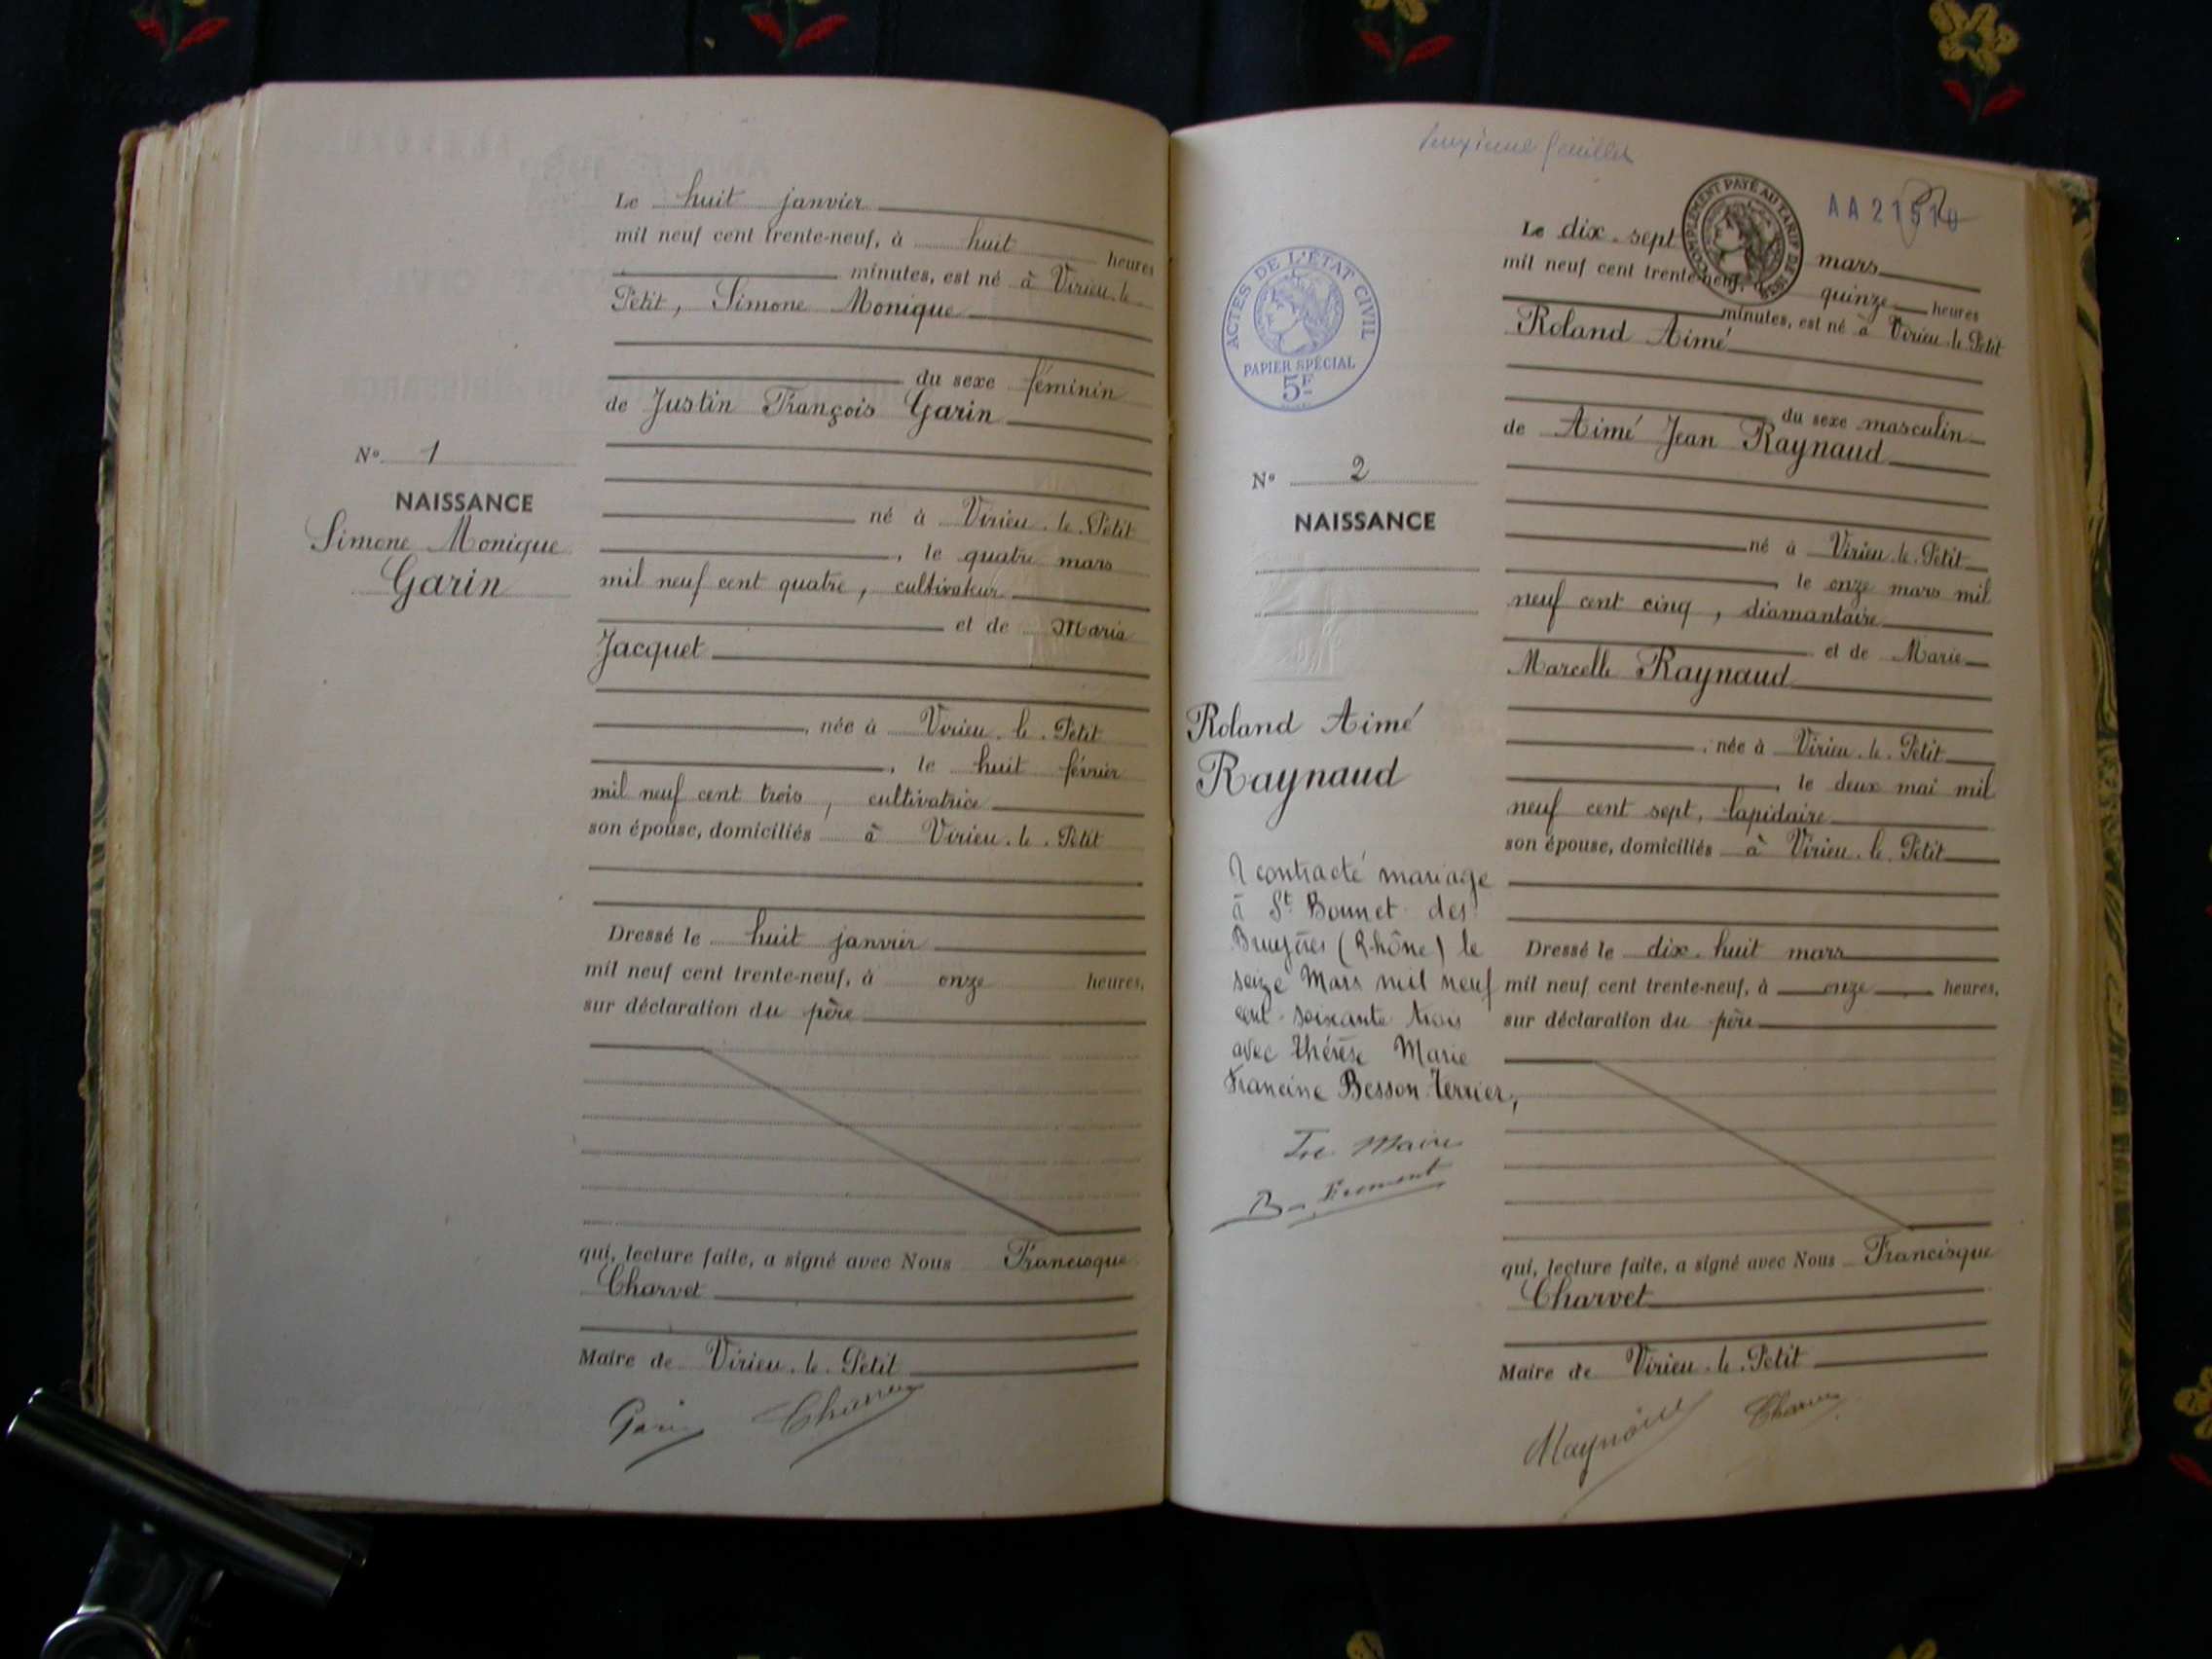 Le huit janvier
mil neuf cent trente-neuf, à huit heures
minutes, est né à Virieu-le-
Petit, Simone Monique
du sexe féminin
de Justin François Garin
né à Virieu-le-Petit
, le quatre mars
mil neuf cent quatre, cultivateur
et de Maria
Jacquet
, née à Virieu-le-Petit
, le huit février
mil neuf cent trois, cultivatrice
son épouse, domiciliés à Virieu-le-Petit
Dressé le huit janvier
mil neuf cent trente-neuf, à onze heures,
sur déclaration du père
qui, lecture faite, a signé avec Nous Francisque
Charvet
Maire de Virieu-le-Petit
Garin Charvet
No 1
NAISSANCE
Simone Monique
Garin
deuxième feuillet
AA 21510
COMPLÉMENT PAYÉ AU TARIF DE
ACTES DE L'ÉTAT CIVIL
PAPIER SPÉCIAL
5F
Le dix-sept mars
mil neuf cent trente-neuf, à quinze heures
minutes, est né à Virieu-le-Petit
Roland Aimé
du sexe masculin
de Aimé Jean Raynaud
né à Virieu-le-Petit
le onze mars mil
neuf cent cinq, diamantaire
et de Marie
Marcelle Raynaud
, née à Virieu-le-Petit
, le deux mai mil
neuf cent sept, lapidaire
son épouse, domiciliés à Virieu-le-Petit
Dressé le dix-huit mars
mil neuf cent trente-neuf, à onze heures,
sur déclaration du père
qui, lecture faite, a signé avec Nous Francisque
Charvet
Maire de Virieu-le-Petit
Raynaud Charvet
No 2
NAISSANCE
Roland Aimé
Raynaud
A contracté mariage
à St Bonnet des
Bruyères (Rhône) le
seize Mars mil neuf
cent soixante trois
avec Thérèse Marie
Francine Besson-Terrier,
Le Maire